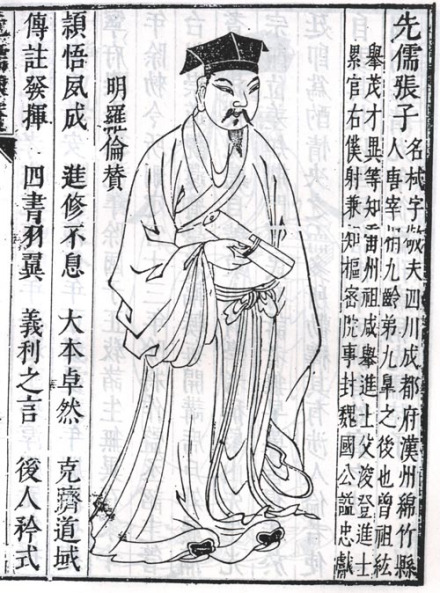 先儒張子 名栻字敬夫四川成都府漢州綿竹縣
人唐宰相九齡弟九臯之後也曾祖紘
舉茂才異等知雷州祖咸舉進士父浚登進士
累官右僕射兼知樞密院事封魏國公諡忠獻
明羅倫贊
穎悟夙成 進修不息 大本卓然 克躋道域
傳註發揮 四書羽翼 義利之言 後人矜式